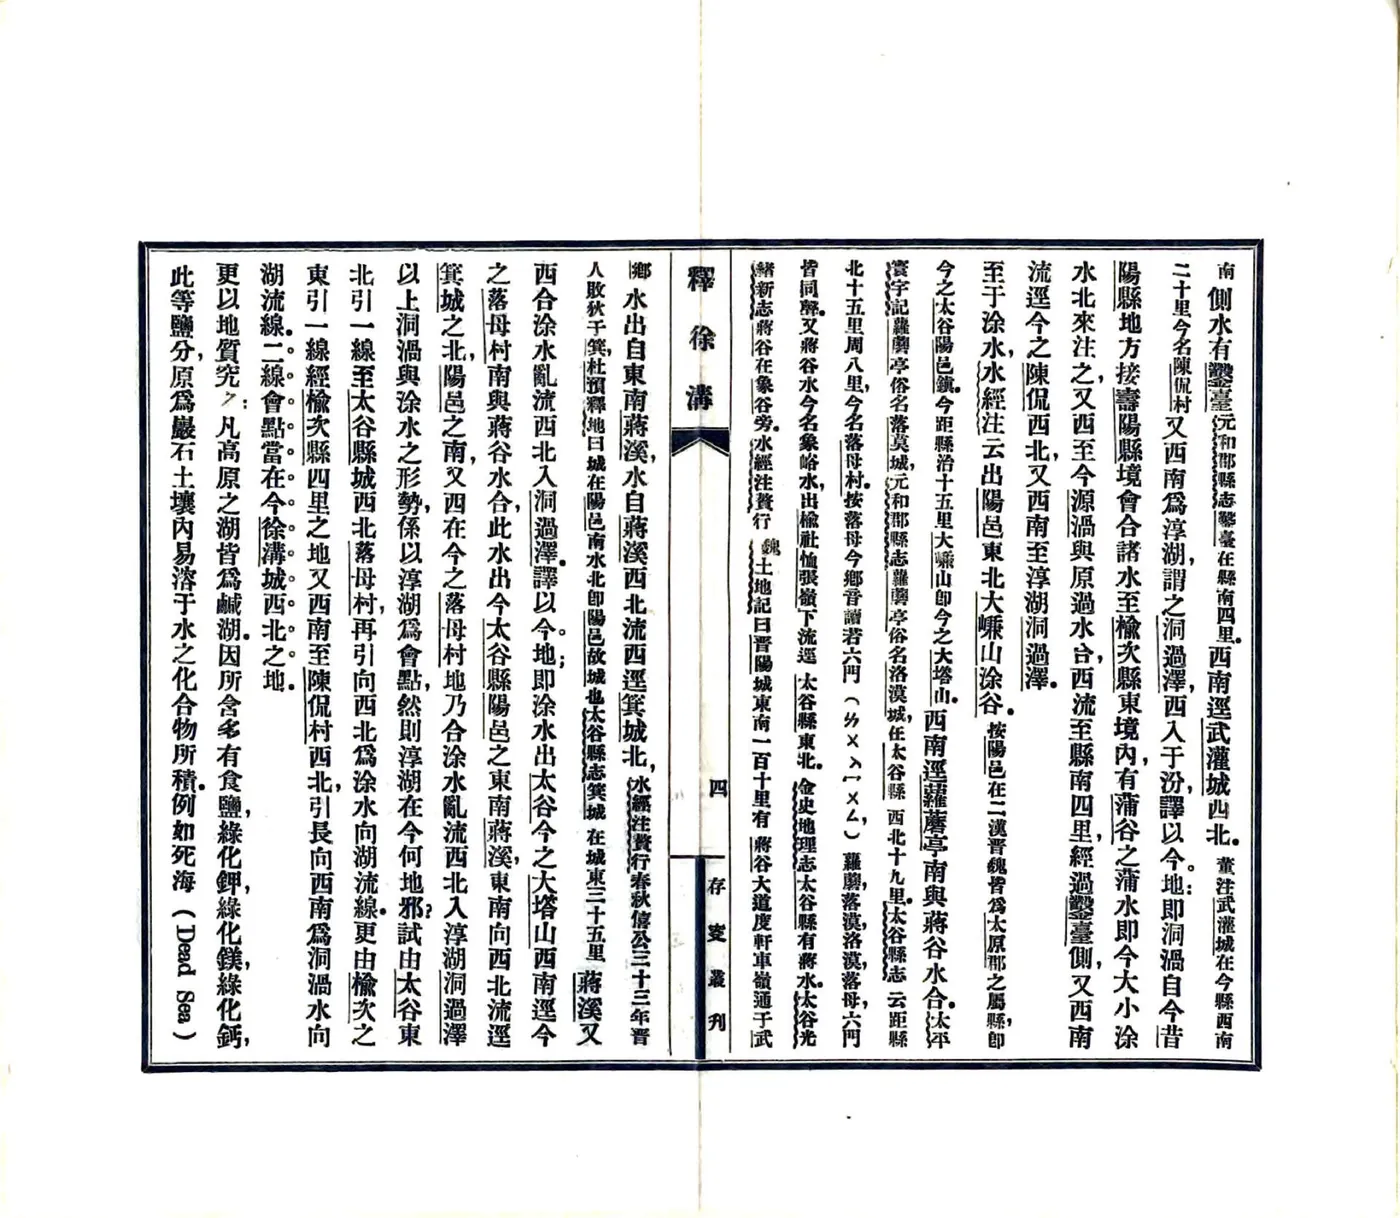 南側水有鑿臺元和郡縣志鑿臺在縣南四里。西南逕武灌城西北。董注武灌城在今縣西南
二十里今名陳侃村又西南爲淳湖,謂之洞過澤,西入于汾,譯以今。地:即洞渦自今昔
陽縣地方接壽陽縣境會合諸水至榆次縣東境內,有蒲谷之蒲水即今大小涂
水北來注之,又西至今源渦與原過水合,西流至縣南四里,經過鑿臺側,又西南
流逕今之陳侃西北,又西南至淳湖洞過澤。
至于涂水,水經注云出陽邑東北大嵰山涂谷。按陽邑在二漢晉魏皆爲太原郡之屬縣,即
今之太谷陽邑鎮。今距縣治十五里大嵰山即今之大塔山。西南逕蘿蘑亭南與蔣谷水合。太平
寰宇記蘿蘑亭俗名落莫城,元和郡縣志蘿蘑亭俗名洛漠城,在太谷縣西北十九里。太谷縣志云距縣
北十五里周八里,今名落母村。按落母今鄉音讀若六門(ㄌㄨㄨㄇㄨㄥ,)蘿蘑落漠,洛漠,落母,六門
皆同聲。又蔣谷水今名象峪水,出榆社恤張嶺下流逕太谷縣東北。金史地理志太谷縣有蔣水。太谷光
緒新志蔣谷在象谷旁。水經注賛行魏土地記曰晉陽城東南一百十里有蔣谷大道度軒車嶺通于武
釋徐溝
四
存雯叢刊
鄉水出自東南蔣溪,水自蔣溪西北流西逕箕城北,水經注賛行春秋僖公三十三年晉
人敗狄于箕,杜預釋地曰城在陽邑南水北即陽邑故城也太谷縣志箕城在城東三十五里蔣溪又
西合涂水亂流西北入洞過澤。譯以今。地;即涂水出太谷今之大塔山西南逕今
之落母村南與蔣谷水合,此水出今太谷縣陽邑之東南蔣溪,東南向西北流逕
箕城之北,陽邑之南,又西在今之落母村地乃合涂水亂流西北入淳湖洞過澤
以上洞渦與涂水之形勢,係以淳湖爲會點,然則淳湖在今何地邪?試由太谷東
北引一線至太谷縣城西北落母村,再引向西北爲涂水向湖流線。更由榆次之
東引一線經榆次縣四里之地又西南至陳侃村西北,引長向西南爲洞渦水向
湖流線。二線會點當在今徐溝城西北之地。
更以地質究之:凡高原之湖皆爲鹹湖。因所含多有食鹽,綠化鉀,綠化鎂,綠化鈣,
此等鹽分,原爲巖石土壤內易溶于水之化合物所積。例如死海(Dead Sea)